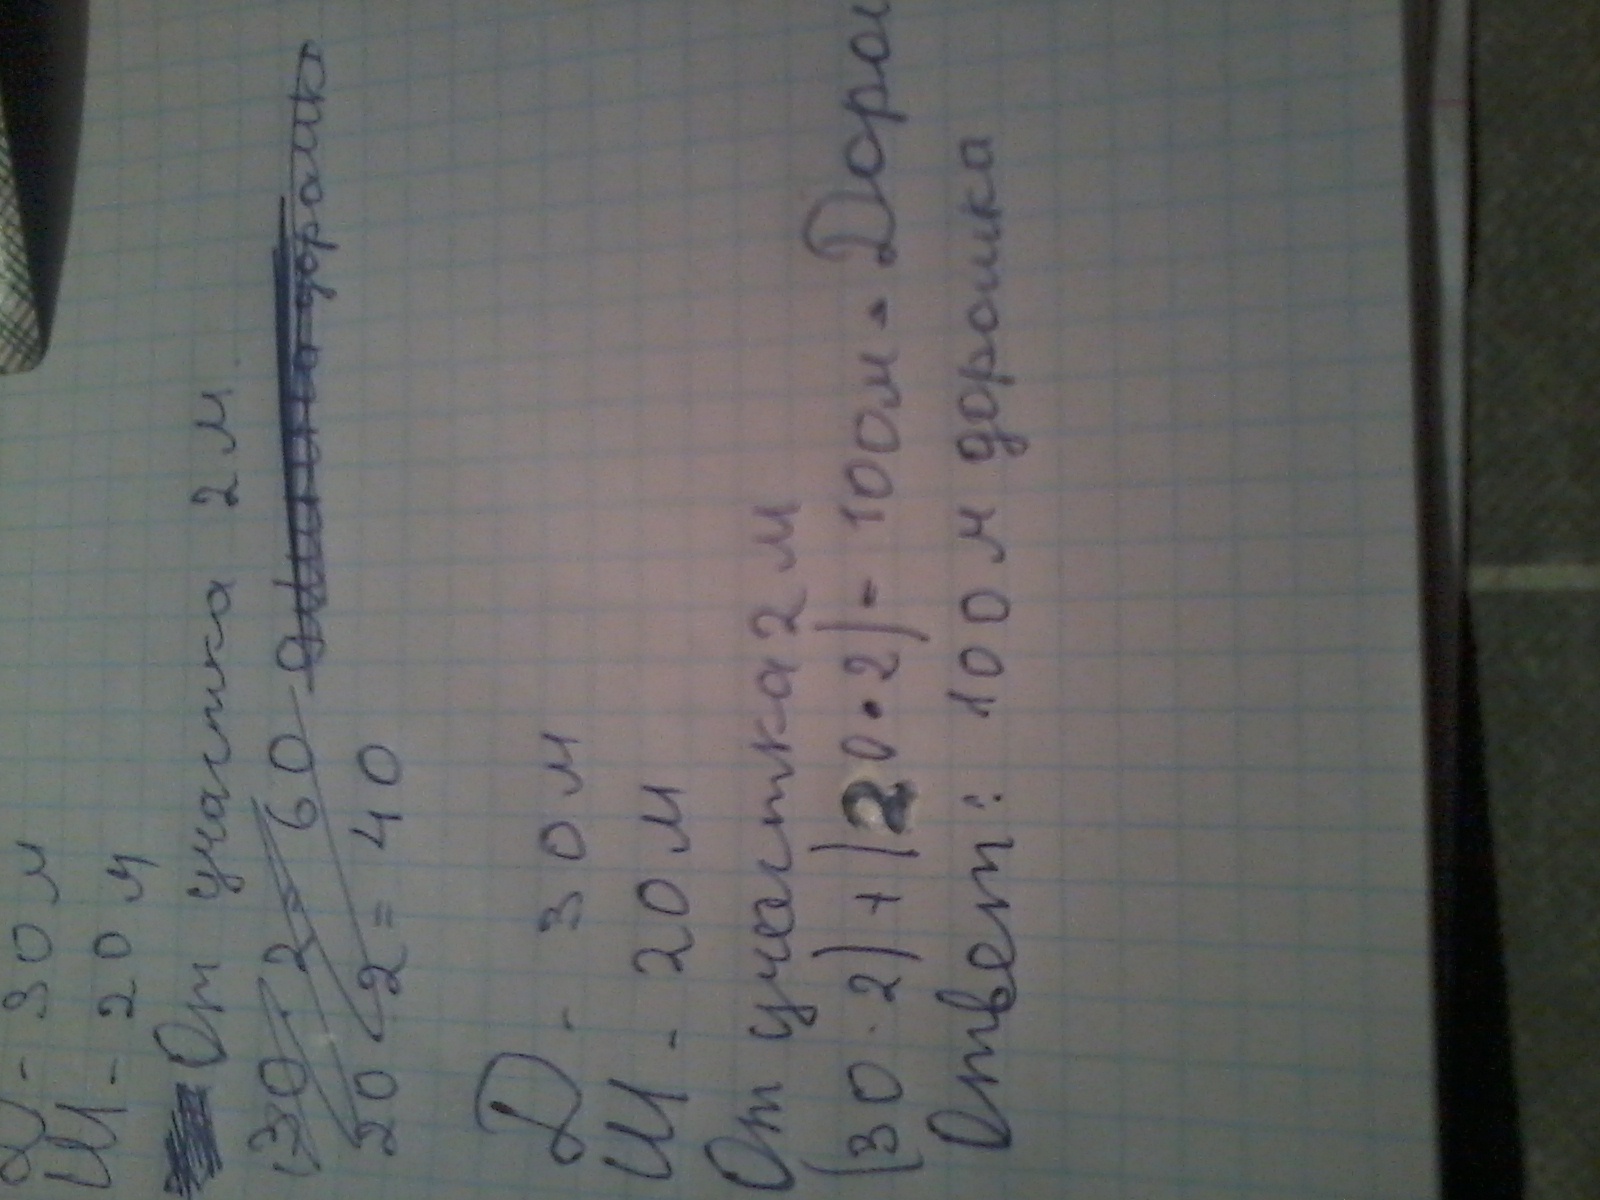 Д - 30 м
Ш - 20 м
От участка 2 м.
(30 · 2 = 60 дорожка
20 · 2 = 40
Д - 30 м
Ш - 20 м
От участка 2 м
(30 · 2) + (20 · 2) = 100 м - Дорож
Ответ: 100 м дорожка